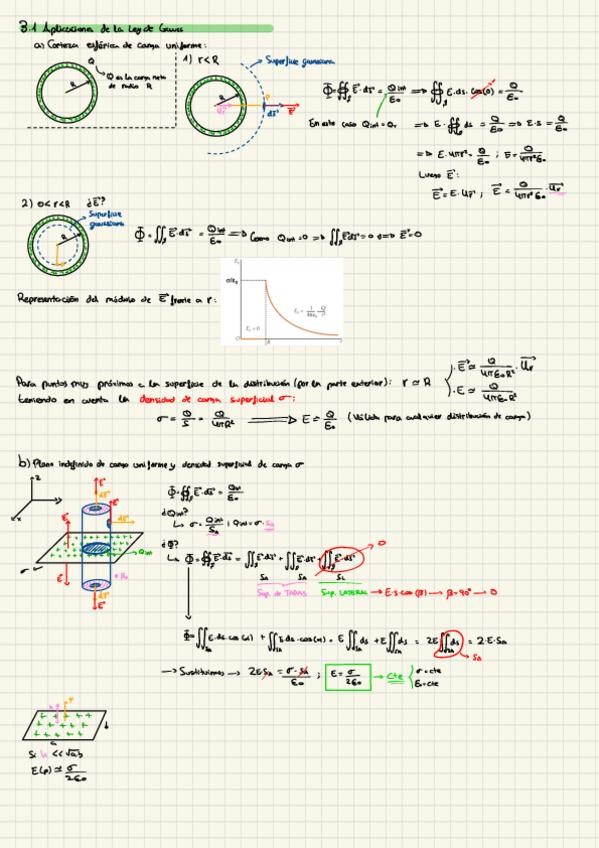 3.1 Aplicaciones de la Ley de Gauss
a) Corteza esférica de carga uniforme:
Q
R
Q es la carga neta
de radio R
1) r<R
Superficie gaussiana
R
P
dS
E
Φ = ∯ E·ds = Qint/ε₀ => ∯ E·ds·cos(0) = Q/ε₀
En este caso Qint = Q, => E·∯ ds = Q/ε₀ => E·S = Q/ε₀
=> E·4πr² = Q/ε₀ ; E = Q/4πr²ε₀
Luego E:
E = E·Ur ; E = Q/4πr²ε₀ · Ur
2) 0<r<R ¿E?
Superficie
gaussiana
R
Φ = ∬ E·ds = Qint/ε₀ => Como Qint = 0 => ∬ E·ds = 0 => E = 0
Representación del módulo de E frente a r:
E₀ = 0
R
Para puntos muy próximos a la superficie de la distribución (por la parte exterior): r ≃ R
E ≃ Q/4πε₀R² · Ur
E ≃ Q/4πε₀R²
teniendo en cuenta la densidad de carga superficial σ:
σ = Q/S = Q/4πR² => E = Q/ε₀ (Válida para cualquier distribución de carga)
b) Plano indefinido de carga uniforme y densidad superficial de carga σ
z
x
E
dS
σ
Qint
Φ = ∯ E·ds = Qint/ε₀
¿Qint?
↳ σ = Qint/SA ; Qint = σ·SA
¿Φ?
↳ Φ = ∯ E·ds = ∬ E·ds + ∬ E·ds + ∬ E·ds → 0
SA SA SL
Sup. de TAPAS Sup. LATERAL → E·s·cos(β) → β=90° → 0
Φ = ∬ E·ds·cos(α) + ∬ E·ds·cos(α) = E ∬ ds + E ∬ ds = 2E ∬ ds = 2·E·SA
SA
→ Sustituimos → 2E·SA = σ·SA/ε₀ ; E = σ/2ε₀ → Cte { σ = cte
ε₀ = cte
P
h
a
Si h << √ab
E(p) ≃ σ/2ε₀